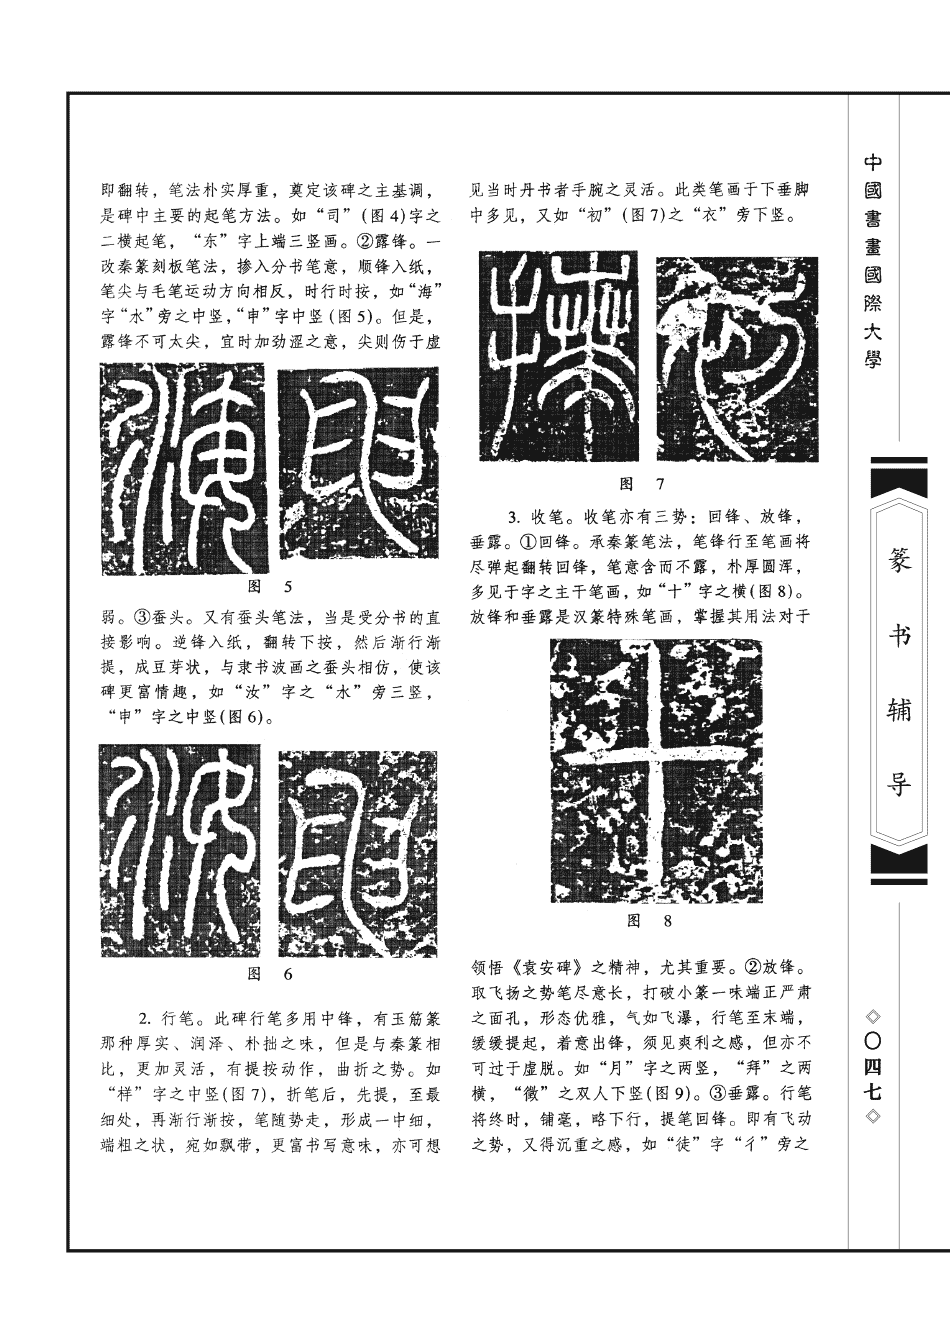 即翻转，笔法朴实厚重，奠定该碑之主基调，
是碑中主要的起笔方法。如“司”(图4)字之
二横起笔，“东”字上端三竖画。②露锋。一
改秦篆刻板笔法，掺入分书笔意，顺锋入纸，
笔尖与毛笔运动方向相反，时行时按，如“海”
字“水”旁之中竖，“申”字中竖(图5)。但是，
露锋不可太尖，宜时加劲涩之意，尖则伤于虚
图 5
弱。③蚕头。又有蚕头笔法，当是受分书的直
接影响。逆锋入纸，翻转下按，然后渐行渐
提，成豆芽状，与隶书波画之蚕头相仿，使该
碑更富情趣，如“汝”字之“水”旁三竖，
“申”字之中竖(图6)。
图 6
2. 行笔。此碑行笔多用中锋，有玉筋篆
那种厚实、润泽、朴拙之味，但是与秦篆相
比，更加灵活，有提按动作，曲折之势。如
“样”字之中竖(图7)，折笔后，先提，至最
细处，再渐行渐按，笔随势走，形成一中细，
端粗之状，宛如飘带，更富书写意味，亦可想
见当时丹书者手腕之灵活。此类笔画于下垂脚
中多见，又如“初”(图7)之“衣”旁下竖。
图 7
3. 收笔。收笔亦有三势：回锋、放锋，
垂露。①回锋。承秦篆笔法，笔锋行至笔画将
尽弹起翻转回锋，笔意含而不露，朴厚圆浑，
多见于字之主干笔画，如“十”字之横(图8)。
放锋和垂露是汉篆特殊笔画，掌握其用法对于
十
图 8
领悟《袁安碑》之精神，尤其重要。②放锋。
取飞扬之势笔尽意长，打破小篆一味端正严肃
之面孔，形态优雅，气如飞瀑，行笔至末端，
缓缓提起，着意出锋，须见爽利之感，但亦不
可过于虚脱。如“月”字之两竖，“拜”之两
横，“微”之双人下竖(图9)。③垂露。行笔
将终时，铺毫，略下行，提笔回锋。即有飞动
之势，又得沉重之感，如“徒”字“彳”旁之
中國書畫國際大學
篆书辅导
◇〇四七◇